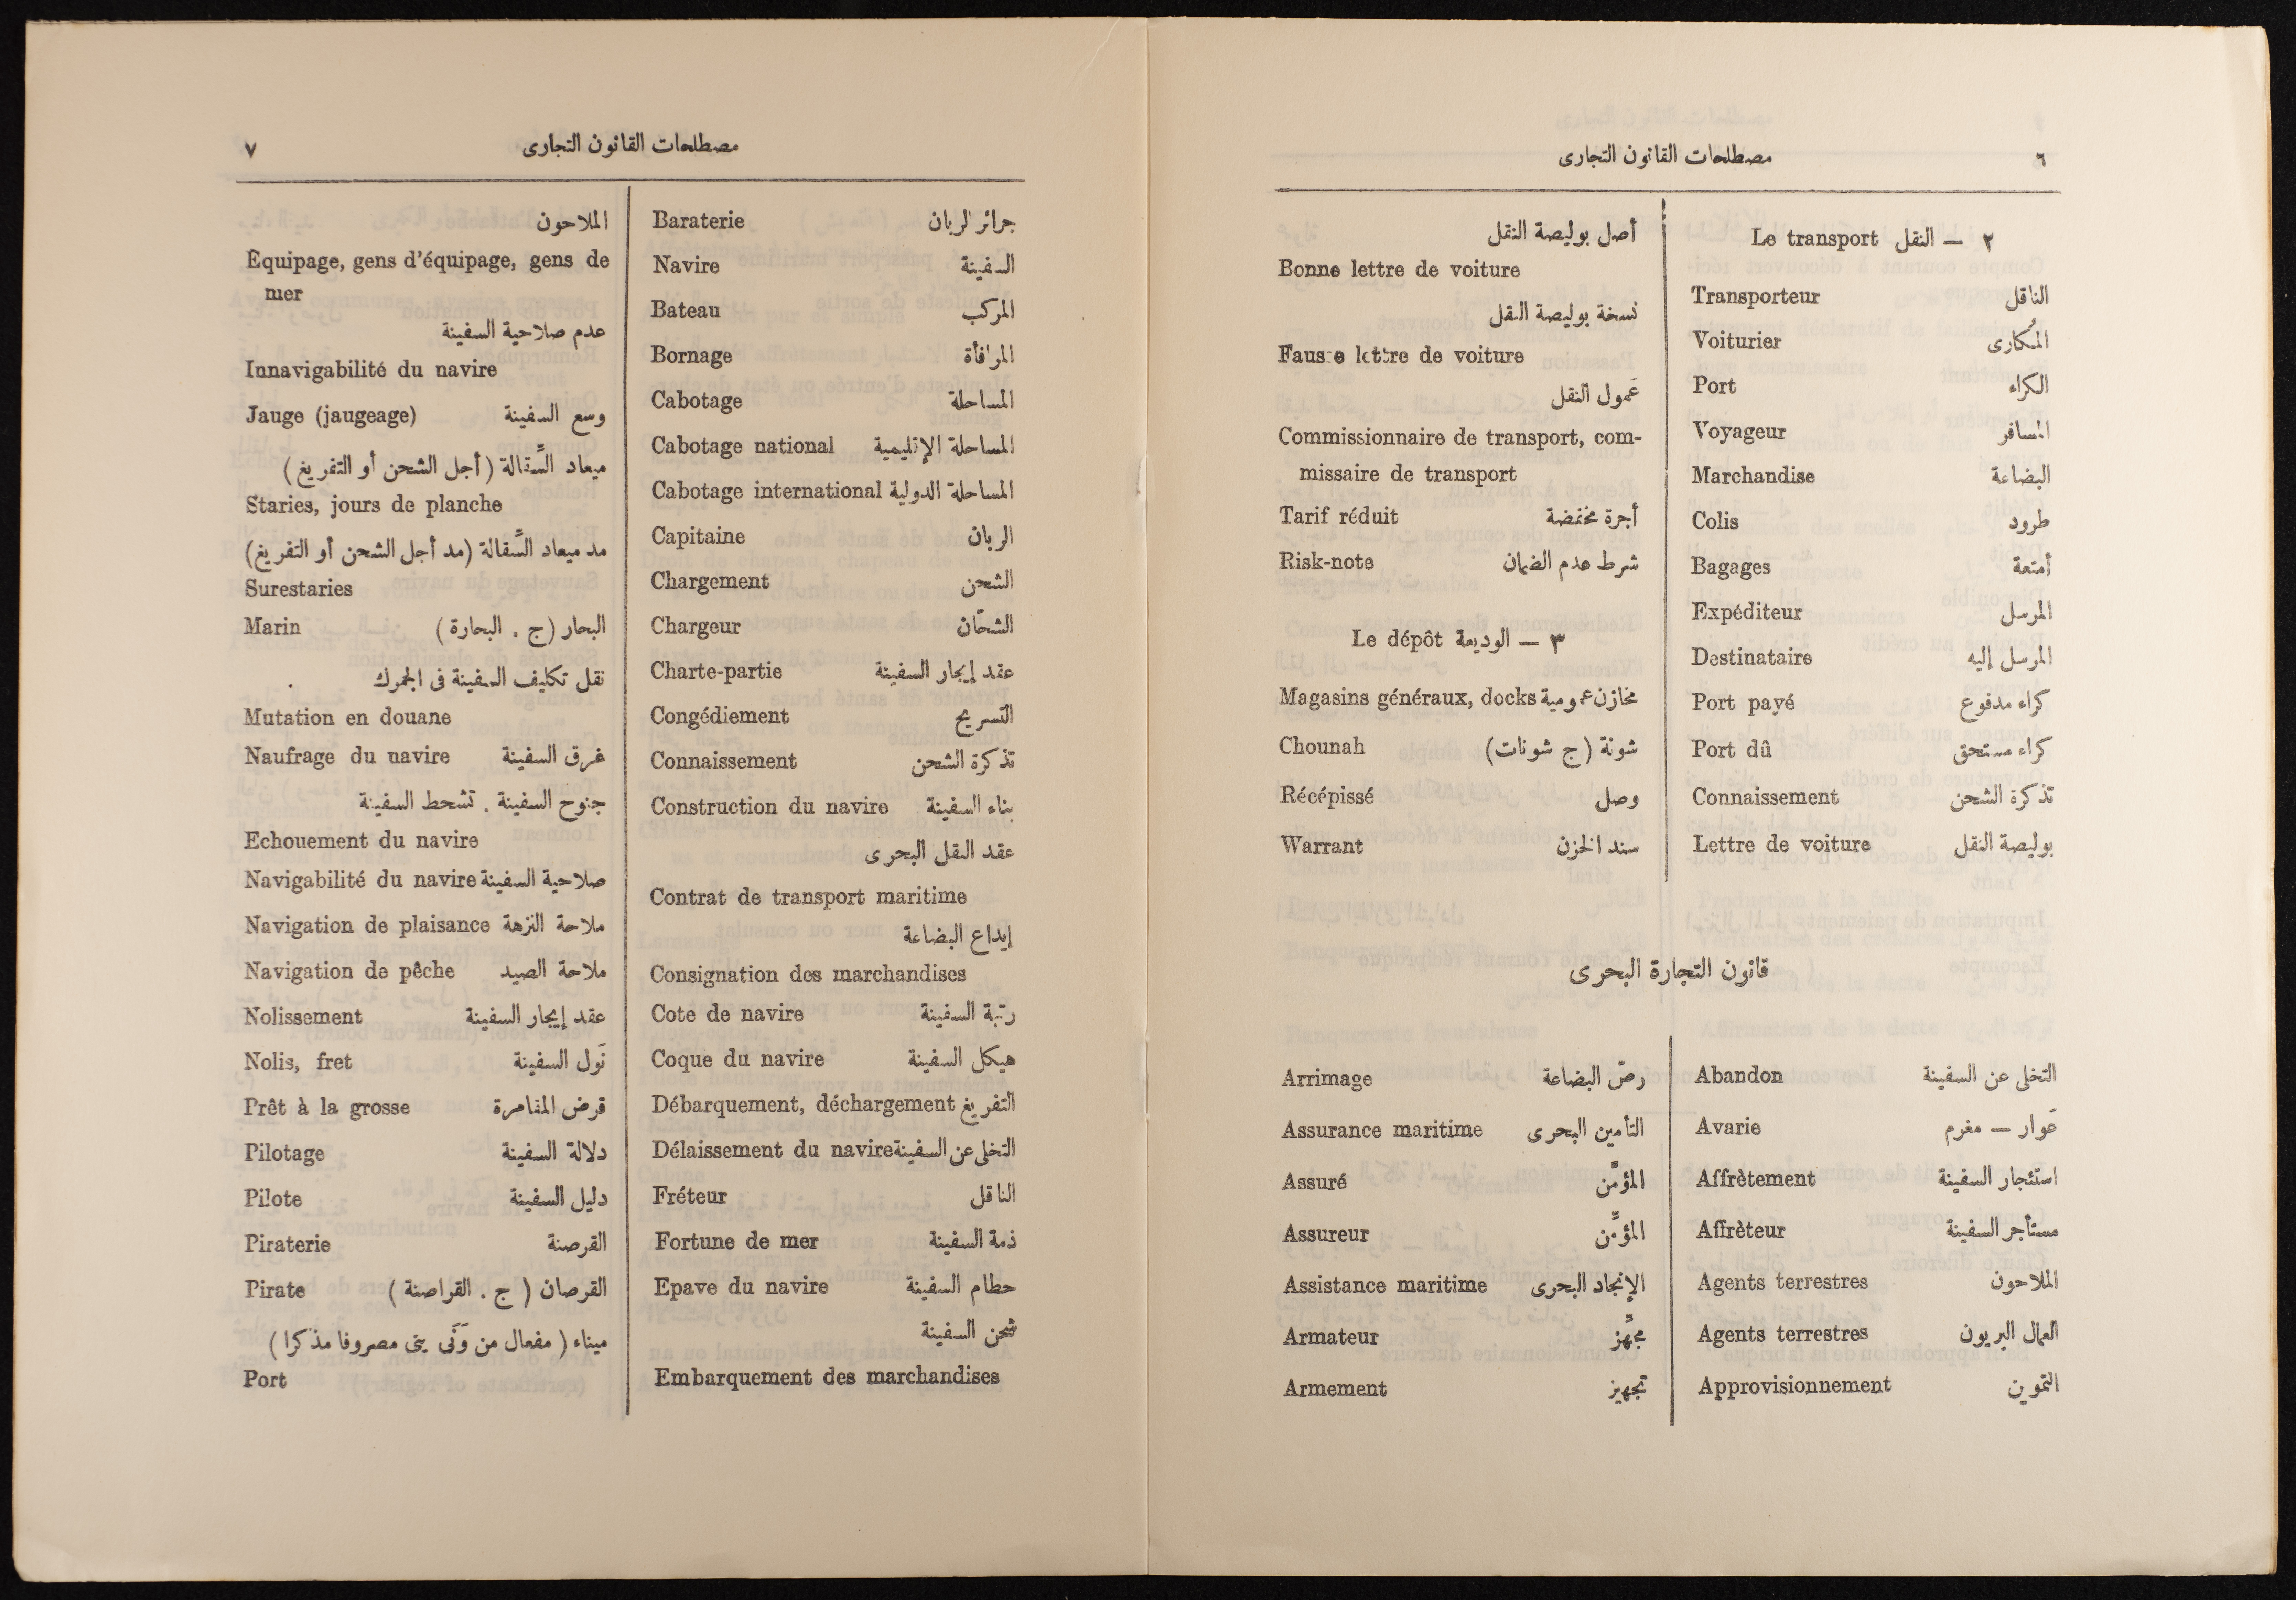 ٦
مصطلحات القانون التجارى
٢ — النقل Le transport
Transporteur الناقل
Voiturier المكارى
Port الكراء
Voyageur المسافر
Marchandise البضاعة
Colis طرود
Bagages أمتعة
Expéditeur المرسل
Destinataire المرسل إليه
Port payé كراء مدفوع
Port dû كراء مستحق
Connaissement تذكرة الشحن
Lettre de voiture بوليصة النقل
أصل بوليصة النقل
Bonne lettre de voiture
نسخة بوليصة النقل
Fausse lettre de voiture
عَمول النقل
Commissionnaire de transport, com-
missaire de transport
Tarif réduit أجرة مخفضة
Risk-note شرط عدم الضمان
٣ — الوديعة Le dépôt
Magasins généraux, docks مخازن عمومية
Chounah شونة (ج شونات)
Récépissé وصل
Warrant سند الخزن
قانون التجارة البحرى
Abandon التخلى عن السفينة
Avarie عَوار — مغرم
Affrètement استئجار السفينة
Affrèteur مستأجر السفينة
Agents terrestres الملاحون
Agents terrestres العمال البريون
Approvisionnement التموين
Arrimage رصّ البضاعة
Assurance maritime التأمين البحرى
Assuré المؤمَّن
Assureur المؤمِّن
Assistance maritime الإنجاد البحرى
Armateur مجهِّز
Armement تجهيز
مصطلحات القانون التجارى
٧
Baraterie جرائر الربان
Navire السفينة
Bateau المركب
Bornage المرافأة
Cabotage المساحلة
Cabotage national المساحلة الإقليمية
Cabotage international المساحلة الدولية
Capitaine الربان
Chargement الشحن
Chargeur الشحّان
Charte-partie عقد إيجار السفينة
Congédiement التسريح
Connaissement تذكرة الشحن
Construction du navire بناء السفينة
عقد النقل البحرى
Contrat de transport maritime
إيداع البضاعة
Consignation des marchandises
Cote de navire رتبة السفينة
Coque du navire هيكل السفينة
Débarquement, déchargement التفريغ
Délaissement du navire التخلى عن السفينة
Fréteur الناقل
Fortune de mer ذمة السفينة
Epave du navire حطام السفينة
شحن السفينة
Embarquement des marchandises
الملاحون
Equipage, gens d'équipage, gens de
mer
عدم صلاحية السفينة
Innavigabilité du navire
Jauge (jaugeage) وسع السفينة
ميعاد السَّقالة (أجل الشحن أو التفريغ)
Staries, jours de planche
مد ميعاد السَّقالة (مد أجل الشحن أو التفريغ)
Surestaries
Marin البحار (ج . البحارة)
نقل تكليف السفينة فى الجمرك
Mutation en douane
Naufrage du navire غرق السفينة
جنوح السفينة . تشحط السفينة
Echouement du navire
Navigabilité du navire صلاحية السفينة
Navigation de plaisance ملاحة النزهة
Navigation de pêche ملاحة الصيد
Nolissement عقد إيجار السفينة
Nolis, fret نَول السفينة
Prêt à la grosse قرض المغامرة
Pilotage دلالة السفينة
Pilote دليل السفينة
Piraterie القرصنة
Pirate القرصان (ج . القراصنة)
ميناء (مفعال من وَنَى ينى مصروفا مذكرا)
Port